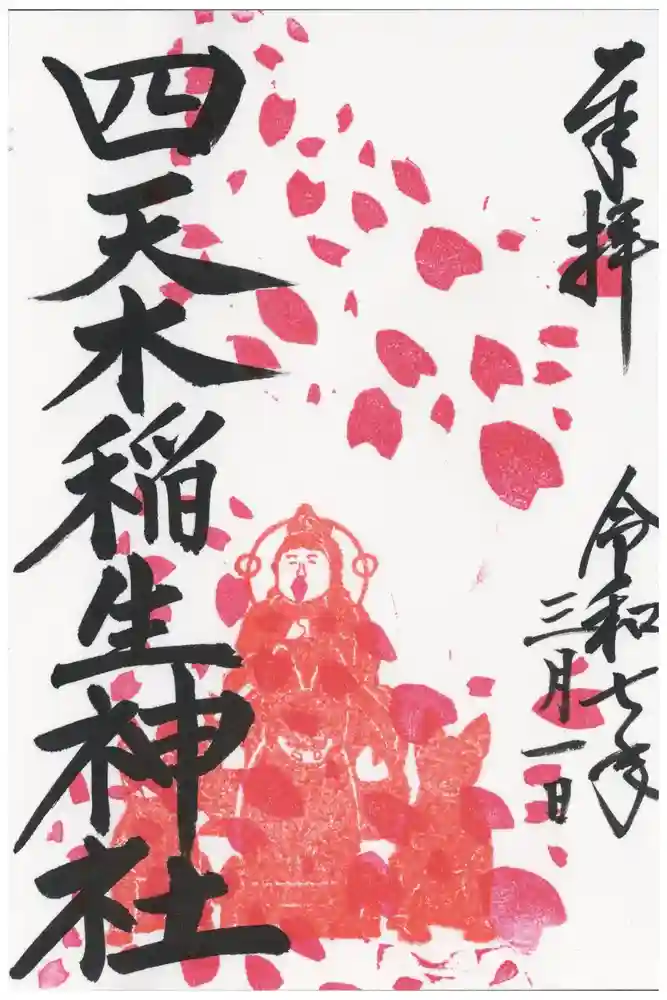 奉拝
令和七年
三月一日
四天木稲生神社